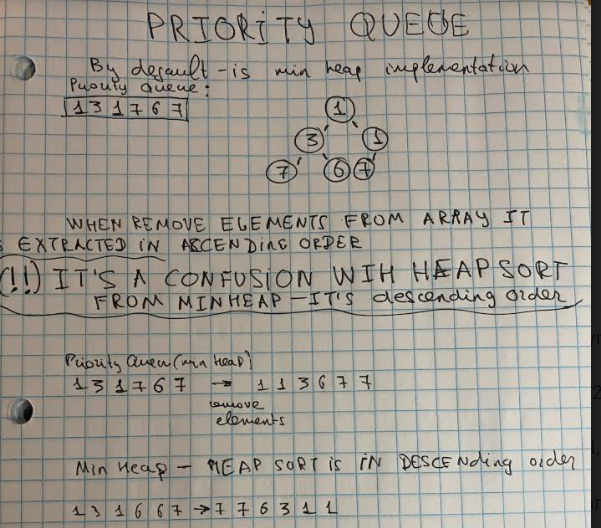 PRIORITY QUEUE
By default - is min heap implementation
Priority Queue:
1 3 1 7 6 7
1
3 1
7 6 7
WHEN REMOVE ELEMENTS FROM ARRAY IT
EXTRACTED IN ASCENDING ORDER
(!!) IT'S A CONFUSION WIH HEAP SORT
FROM MINHEAP - IT'S descending order
Priority Queu (min Heap)
1 3 1 7 6 7 → 1 1 3 6 7 7
remove
elements
Min Heap - HEAP SORT is IN DESCENDing order
1 3 1 6 6 7 → 7 7 6 3 1 1